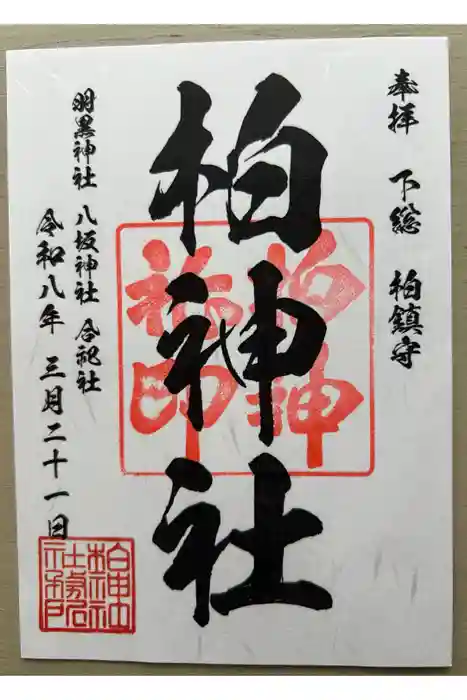 奉拝 下総 柏鎮守
柏神社
羽黒神社 八坂神社 合祀社
令和八年 三月二十一日
柏神
社印
柏神社
社務所
之印